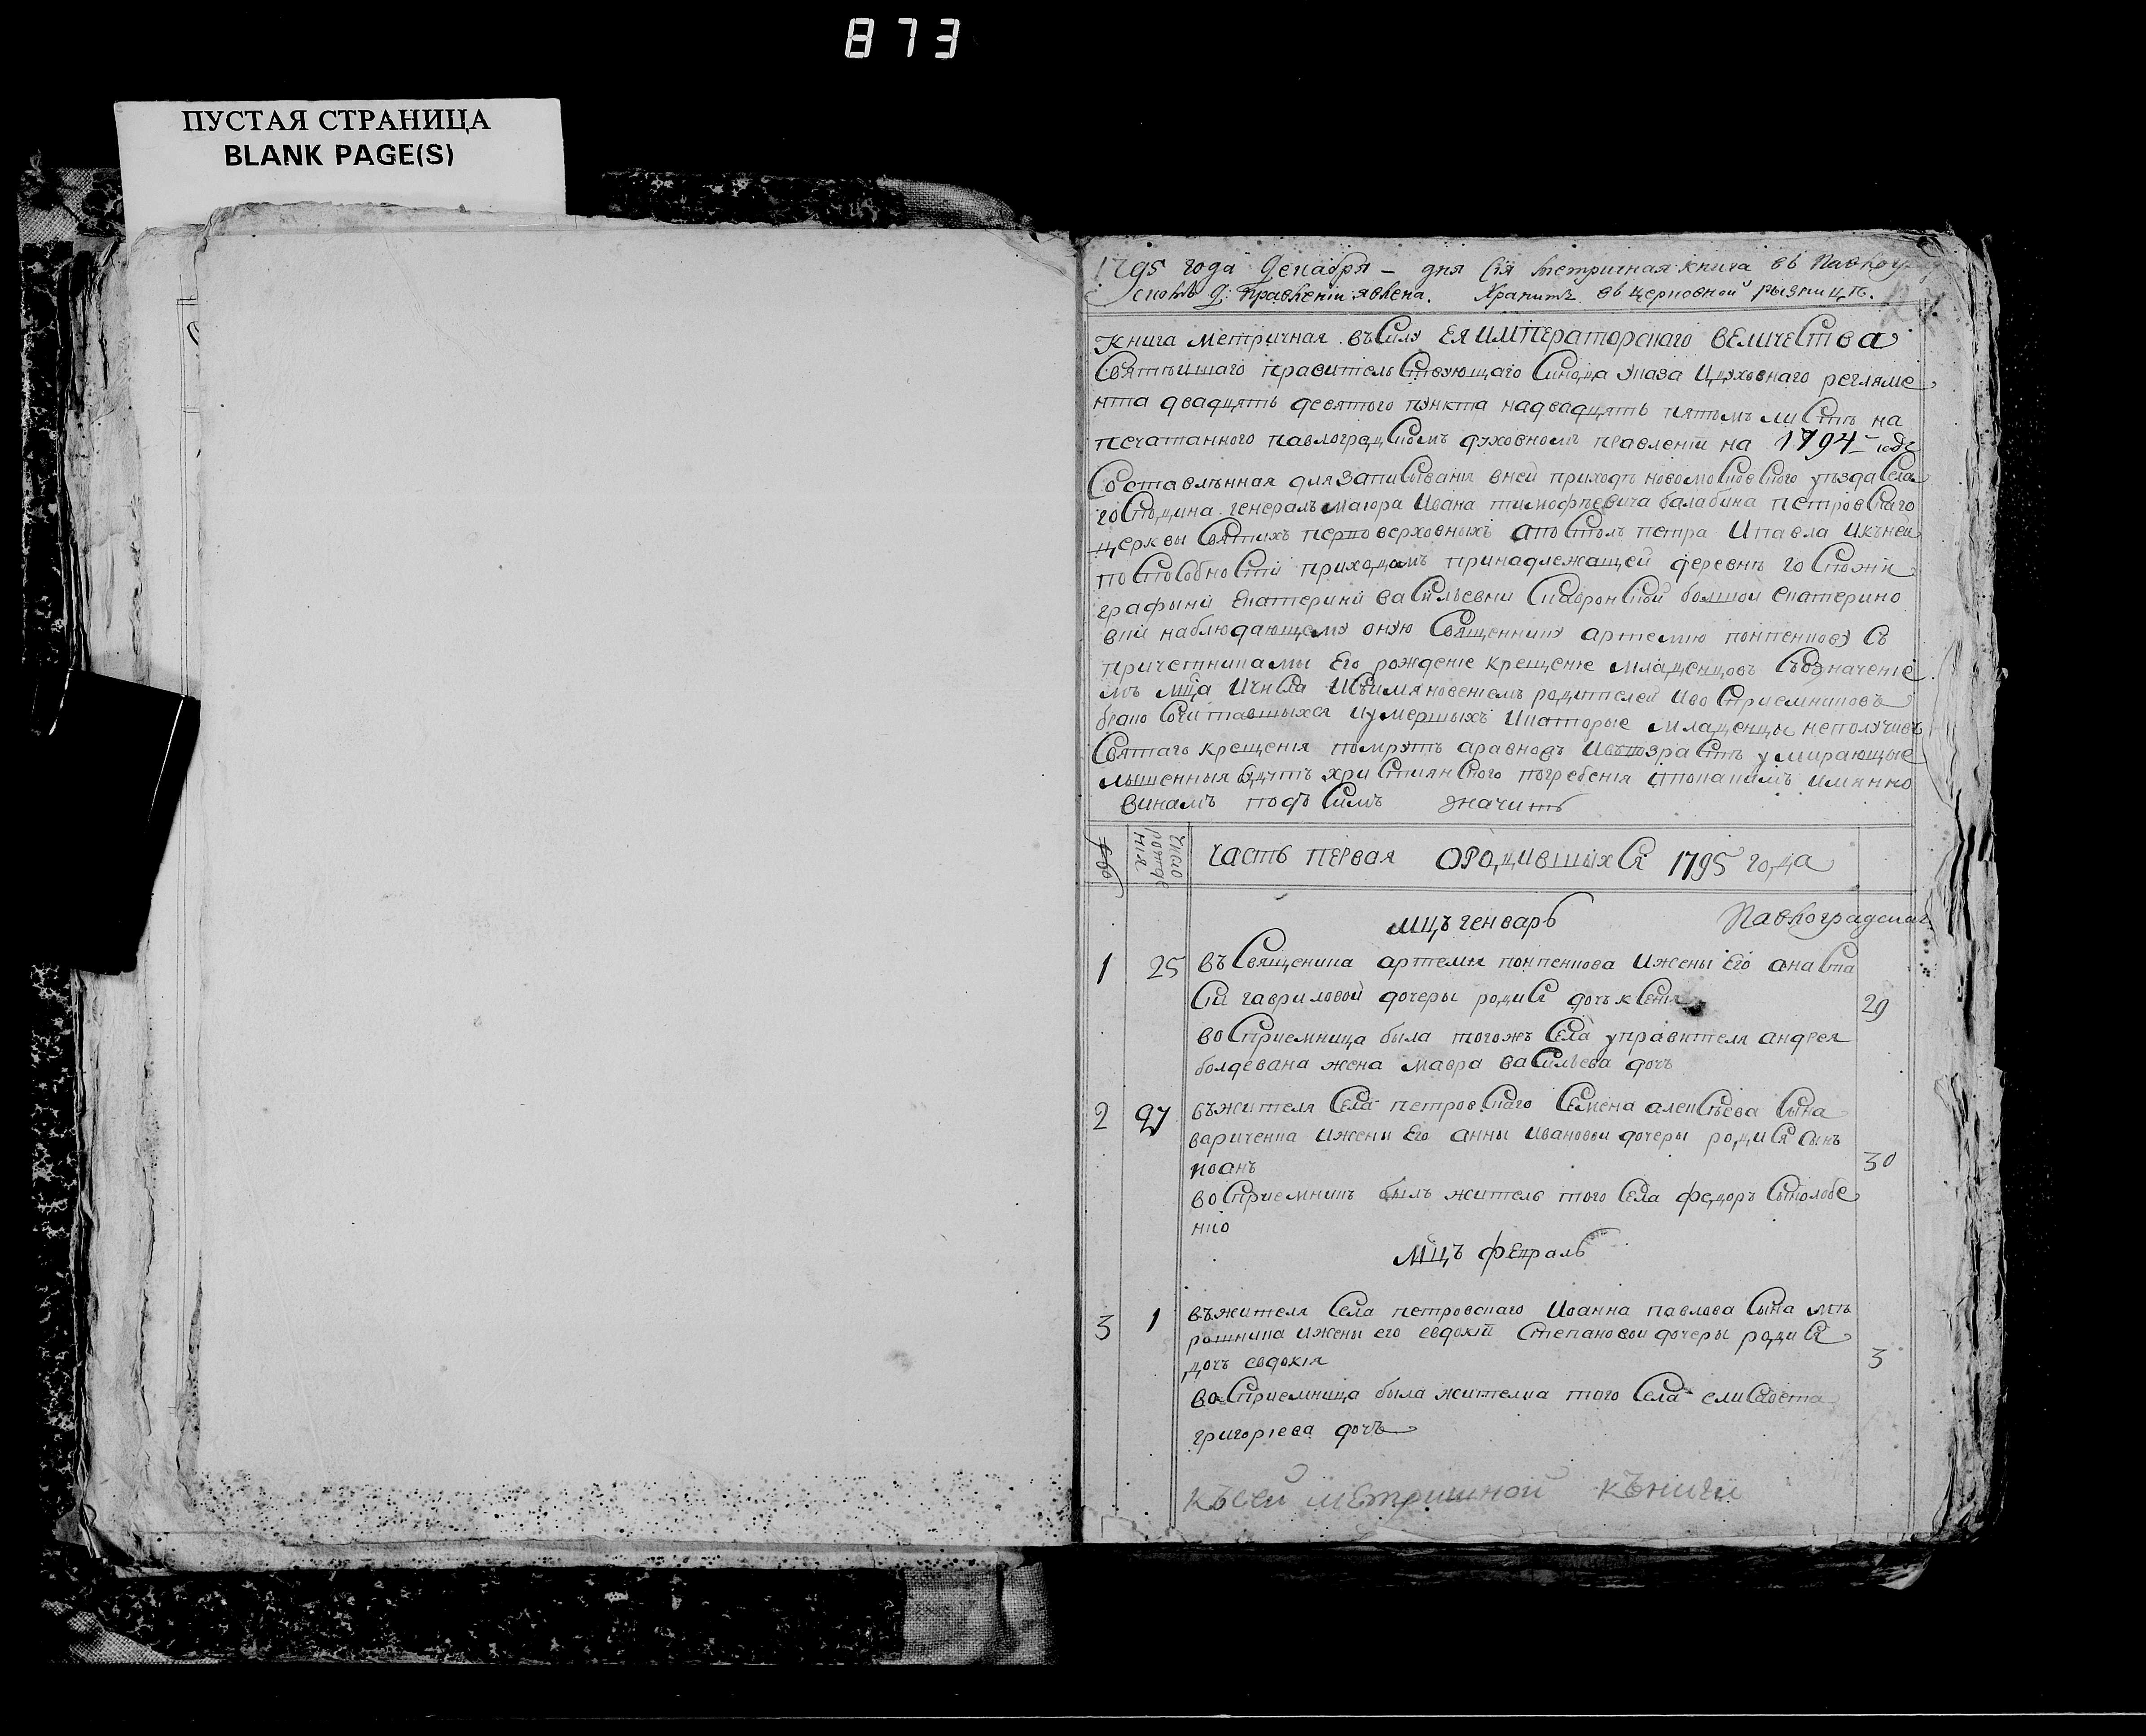 873
ПУСТАЯ СТРАНИЦА
BLANK PAGE(S)
1795 года Декабря – дня Сія метричная книга въ Павлогр
скомъ Д: Правленіи явлена. Хранитъ въ церковной рызницѣ.
Книга метричная въ Силу ЕЯ ИМПЕРАТОРСКАГО ВЕЛИЧЕСТВА
Святѣишаго правительствующаго Синода указа И духовнаго регляме
нта двадцять девятого пункта надвадцять пятомъ листѣ на
печатанного павлоградскомъ духовномъ правленіи на 1794 – годъ
Составлѣнная для записивания вней приходѣ новомосковского уѣзда села
господина генералъ маіора Ивана тимофѣевича балабина петровскаго
церквы святихъ первоверховныхъ апостолъ петра И павла Икъней
поспособности приходомъ принадлежащей деревнѣ госпожи
графыни Екатерини васильевни Скавронской болшой екатерино
вки наблюдающему оную Священнику артемию понпенкову Съ
причетникамы Его рождение крещение младенцовъ Собозначение
мъ мца Ичисла ИСъимяновениемъ родителей Ивосприемниковъ
брако сочитавшыхся Иумершыхъ Икаторые младенцы неполучивъ
Святаго крещения помрутъ аравновъ Ивъвозрастѣ умирающые
лышенныя будутъ християнского погребения стокакимъ имянно
винамъ подъ Симъ значитъ
число рожде ния
часть первая ОРОДИВШЫХСЯ 1795 года
МЦЪ генварь Павлоградскаг
1 25 въ Священика артемия понпенкова Ижены Его анаста
сіи гавриловой дочеры родися дочъ ксения 29
восприемница была тогожъ Села управителя андрея
болдевана жена мавра васильева дочъ
2 27 въжителя Села петровскаго Семена алексѣева Сына
вариченка Ижены Его анны Ивановой дочеры родися сынъ
иоанъ 30
восприемникъ былъ житель того Села федоръ Сыполобе
нко
МЦЪ февраль
3 1 въжителя Села петровскаго Иоанна павлова Сына мѣ
рошника Ижены его евдокіи Степановой дочеры родися
дочъ евдокия 3
восприемница была жителка того Села елисавета
григориева дочъ
късей метришной кънизи